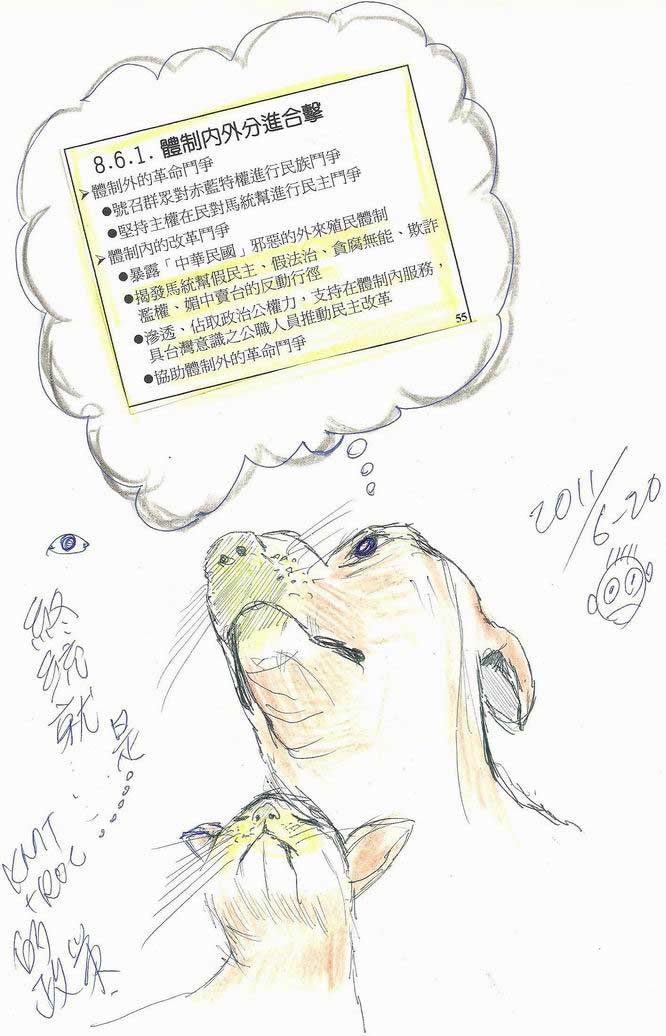 8.6.1. 體制內外分進合擊
➢體制外的革命鬥爭
●號召群眾對赤藍特權進行民族鬥爭
●堅持主權在民對馬統幫進行民主鬥爭
➢體制內的改革鬥爭
●暴露「中華民國」邪惡的外來殖民體制
●揭發馬統幫假民主、假法治、貪腐無能、欺詐
濫權、媚中賣台的反動行徑
●滲透、佔取政治公權力，支持在體制內服務，
具台灣意識之公職人員推動民主改革
●協助體制外的革命鬥爭
55
2011/6-20
終統就是......
KMT
+ROC
的
政策